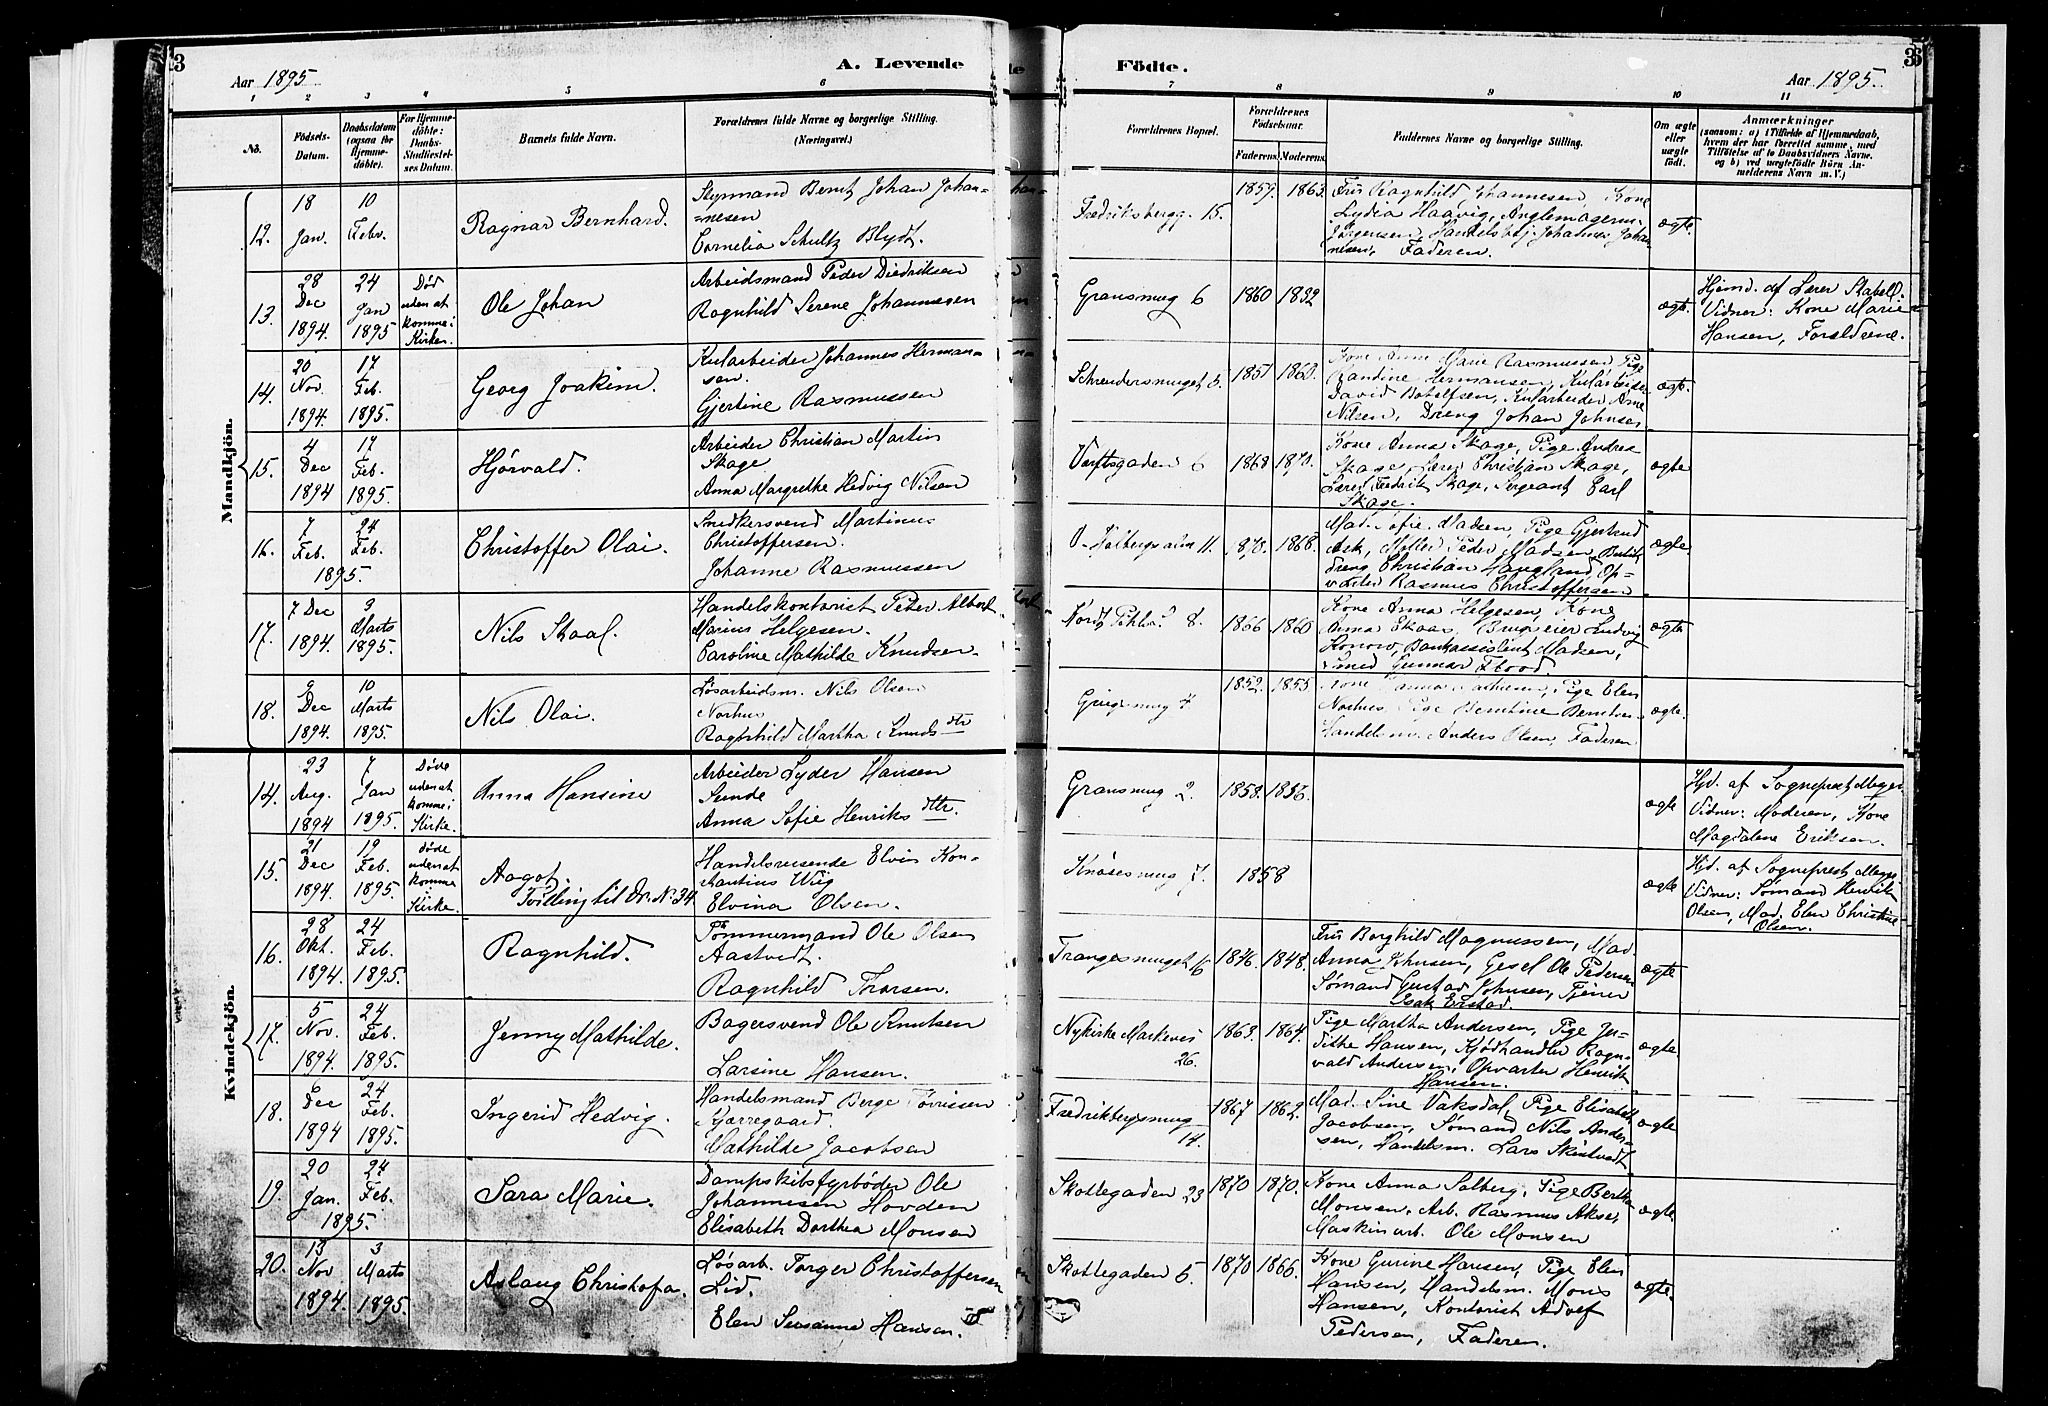 3
Aar 1895.
A. Levende
Födte.
Aar 1895.
3
1 2 3 4 5 6 7 8 9 10 11
No.
Födsels-Datum.
Daabsdatum (ogsaa for Hjemmedöbte).
For Hjemmedöbte: Daabs-Stadfæstelses Datum.
Barnets fulde Navn.
Forældrenes fulde Navne og borgerlige Stilling.
(Næringsvei.)
Forældrenes Bopæl.
Forældrenes Födselsaar.
Faderens. Moderens.
Faddernes Navne og borgerlige Stilling.
Om ægte eller uægte født.
Anmærkninger
(saasom: a) i Tilfælde af Hjemmedaab, hvem der har forrettet samme, med Tilföielse af to Daabsvidners Navne, og b) ved uægtefödte Börn Anmelderens Navn m. V.)
Mandkjön.
12.
18 Jan.
10 Febr.
Ragnar Bernhard.
Styrmand Bernt Johan Johan=
=nesen
Cornelia Schultz Blydt.
Fredriksbergg. 15.
1859. 1863.
Frk Ragnhild Johannesen, Kone
Lydia Haavig, Anglemagerm.
Jørgensen, Handelsbetj. Johannes Johan
nesen, Faderen.
ægte.
13.
28 Dec 1894
24 Jan 1895
Død uden at komme i Kirken.
Ole Johan
Arbeidsmand Peder Diedriksen
Ragnhild Serene Johannesen
Gransmug 6
1860
ægte.
Hjemd. af Lærer Stabell.
Vidner: Kone Marie
Hansen, Forældrene.
14.
20 Nov. 1894.
17 Feb. 1895.
Georg Joakim.
Kularbeider Johannes Herman=
sen.
Gjertine Rasmussen
5.
1860.
Kone Anne Marie Rasmussen, Pige
Randine Hermansen, Kularbeider
David Botolfsen, Kularbeider Arne
Nilsen, Dreng Johan Johnsen
ægte.
15.
4 Dec 1894
17 Feb. 1895.
Hjørvald.
Arbeider Christian Martin
Skage
Anna Margrethe Hedvig Nilsen
Værftsgaden 6
1868 1870.
Kone Anna Skage, Pige Andrea
Skage, Lærer Christian Skage,
Lærer Fredrik Skage, Sergeant Carl
Skage.
ægte
16.
7 Feb.
24 Feb.
1895.
Christoffer Olai.
Snedkersvend Martinus
Christoffersen.
Johanne Rasmussen
11.
1870. 1868.
Mad. Sofie Madsen, Pige Gjertrud
Ask, Møller Peder Madsen,
dreng Christian Haugland, Op=
varter Rasmus Christoffersen
ægte
17.
7 Dec 1894.
3 Marts 1895.
Nils Skaal.
Handelskontorist Peter Albert
Marius Helgesen.
Caroline Mathilde Knudsen.
8.
1866 1860
Kone Anna Helgesen, Kone
Anna Skaar, Brugseier Ludvig
Konow, Bankassistent Madsen,
Smed Gunnar Flood.
ægte
18.
9 Dec 1894.
10 Marts 1895.
Nils Olai.
Løsarbeidsm. Nils Olsen
Norhus
Ragnhild Martha Knudsdtr
1852. 1855
Pige Elen
Norhus, Pige Berntine Berntsen
Handelsm. Anders Olsen, Faderen
ægte.
Kvindekjön.
14.
23 Aug. 1894
7 Jan 1895.
Døde uden at komme i Kirke.
Anna Hansine
Arbeider Lyder Hansen
Sunde
Anna Sofie Henriksdtr.
Gransmug 2.
1858. 1856.
ægte
Hjd. af Sogneprest Meyer
Vidner: Moderen, Kone
Magdalene Eriksen.
15.
21 Dec 1894.
19 Feb. 1895.
døde uden at komme i Kirke.
Aagot.
Tvilling til Dr. N. 34.
Handelsreisende Elvin Kon=
stantius Wiig
Elvina Olsen.
Knøsesmug 7.
1858
ægte
Hjd. af Sogneprest Meyer
Vidner: Sømand Henrik
Olsen, Mad. Elen Christine
Olsen.
16.
28 Okt. 1894
24 Feb. 1895.
Ragnhild.
Tømmermand Ole Olsen
Aastvedt.
Ragnhild Thorsen.
Trangesmuget 16
1846. 1848.
Frk Borghild Magnussen, Mad.
Anna Johnsen, Gesel Ole Pedersen
Sømand Gustad Johnsen, Tjener
Isak Erstad.
ægte
17.
5 Nov. 1894
24 Feb. 1895.
Jenny Mathilde.
Bagersvend Ole Knutsen
Larsine Hansen.
Nykirke Markevei
26.
1863. 1864.
Pige Martha Andersen, Pige Ju=
dithe Hansen, Kjødhandler Ragn=
vald Andersen, Opvarter Henrik
Hansen.
ægte.
18.
Dec 1894
24 Feb. 1895.
Ingerid Hedvig.
Handelsmand Berge Tørrissen
Kjærregaard.
Mathilde Jacobsen
Fredrikbergsmug
14.
1867 1862.
Mad. Sine Vaksdal, Pige Elisabeth
Jacobsen, Sømand Nils Ander=
sen, Handelsm. Lars Skistvedt
ægte
19.
20 Jan.
24 Feb.
1895.
Sara Marie.
Dampskibsfyrbøder Ole
Johannesen Hovden
Elisabeth Dorthea Monsen
Skottegaden 23
1870 1870.
Kone Anna Solberg, Pige Bertha
Monsen, Arb. Rasmus Akse,
Maskinarb. Ole Monsen
ægte
20.
13 Nov 1894.
3 Marts 1895.
Aslaug Christofa.
Løsarb. Torger Christoffersen
Lid.
Elen Susanne Hansen.
Skottegaden 5.
1870 1866.
Kone Gurine Hansen, Pige Elen
Hansen, Handelsm. Mons
Hansen, Kontorist Adolf
Pedersen, Faderen.
ægte.